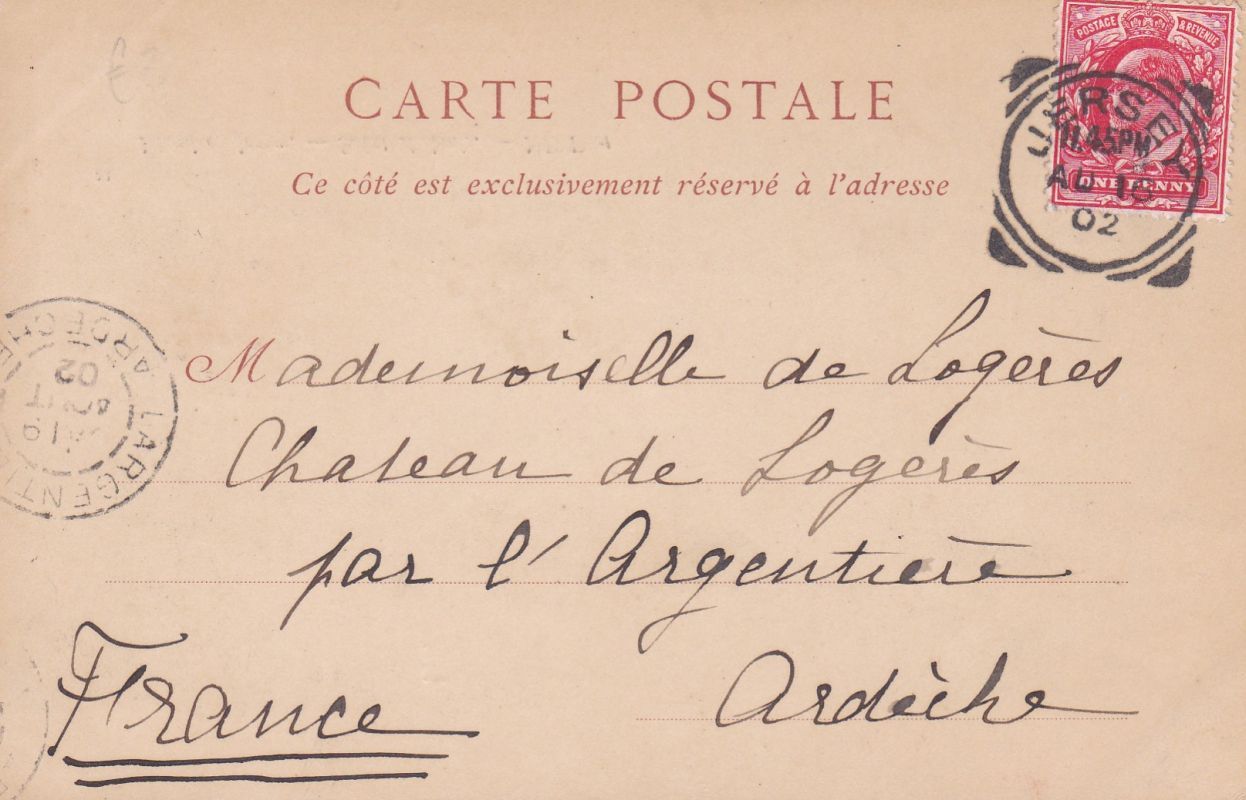 CARTE POSTALE
Ce côté est exclusivement réservé à l'adresse
POSTAGE & REVENUE
ONE PENNY
JERSEY
11.45PM
AU 16
02
Mademoiselle de Logères
Chateau de Logerès
par l'Argentière
Ardèche
France
LARGENTI
ARDECHE
19
AOUT
02